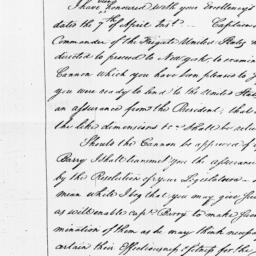 I have been honoured with your Excellency's
dated the 7th of April Inst — Captain
Commander of the Frigate United States
directed to proceed to New York to examin
Cannon which you have been pleased to
you were ready to lend to the United Sta
an assurance from the President, that
the like dimensions &c a shall be retu
Should the Cannon be approved of
Barry I shall transmit you the assurance
by the Resolution of your Legislature
mean while I beg that you may give
as will enable Capt. Barry to make
mination of them as he may think necess
certain their Effectiveness &